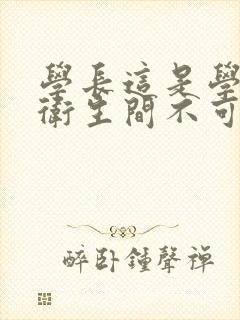 學長這是學
衛生間不可
醉卧鐘聲禪